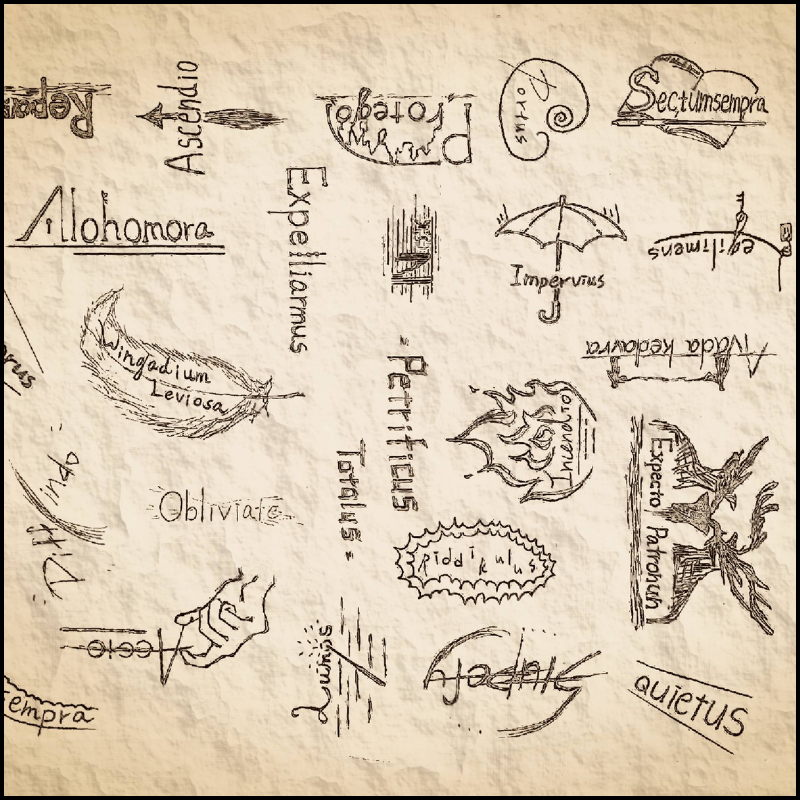 Repar
Ascendio
Protego
Portus
Sectumsempra
Alohomora
Expelliarmus
Impervius
egilimens
Avada kedavra
Wingadium
Leviosa
- Petrificus
Totalus -
Incendio
Expecto Patronum
Obliviate
Riddikulus
Accio
Lumos
quietus
empra